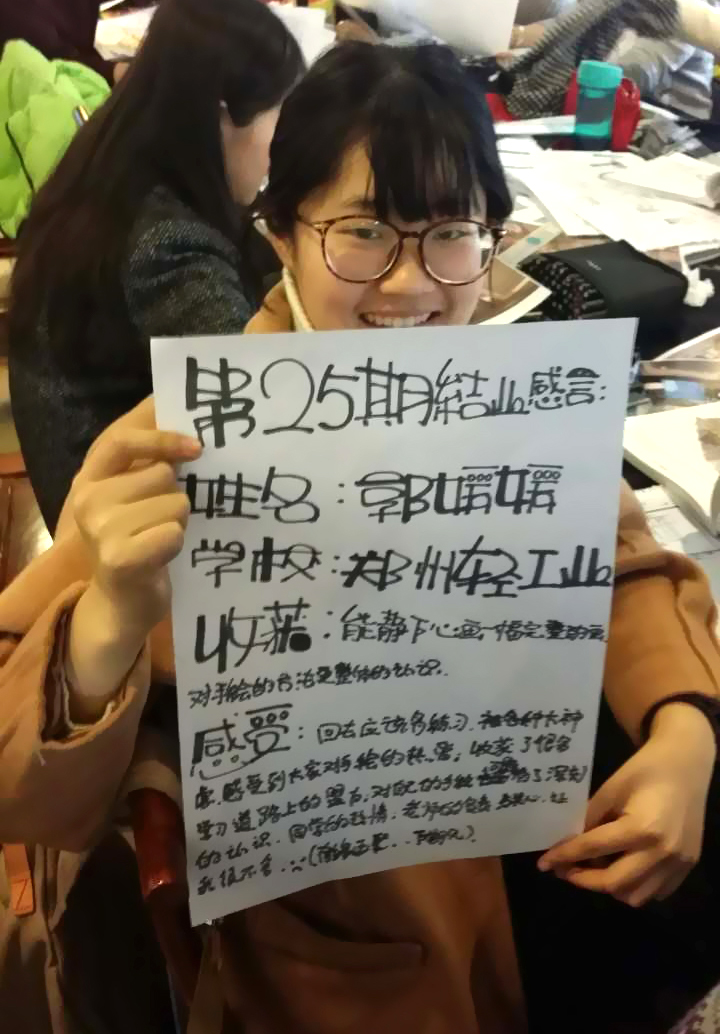 第25期結业感言:
姓名:郭媛媛
学校:郑州轻工业
收获:能静下心画一幅完整的画
对手绘的方法更整体的认识.
感受:回去应该多练习.
感受到大家对手绘的热爱,收获了很多
学习道路上的盟友,对自己的手绘 了深刻
的认识.同学的热情,老师的 让
我很不舍.